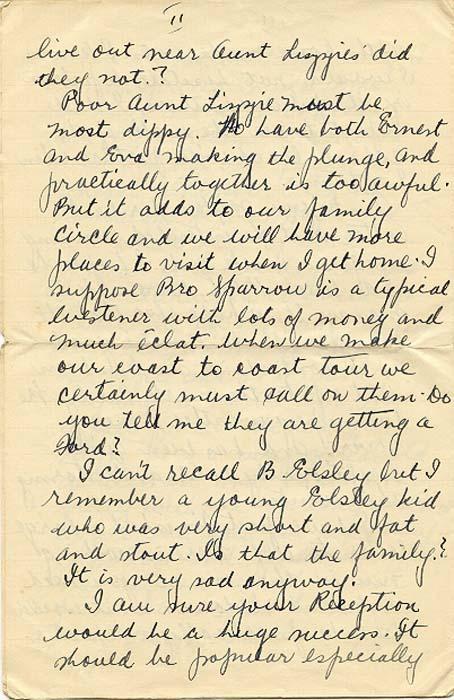 II
live out near Aunt Lizzies did
they not.?
Poor Aunt Lizzie must be
most dippy. To have both Ernest
and Eva making the plunge, and
practically together is too awful.
But it adds to our family
circle and we will have more
places to visit when I get home. I
suppose Bro Sparrow is a typical
Westener with lots of money and
much éclat. When we make
our coast to coast tour we
certainly must call on them. Do
you tell me they are getting a
Ford?
I can't recall B Elsley but I
remember a young Elsley kid
who was very short and fat
and stout. Is that the family.?
It is very sad anyway.
I am sure your Reception
would be a huge success. It
should be popular especially